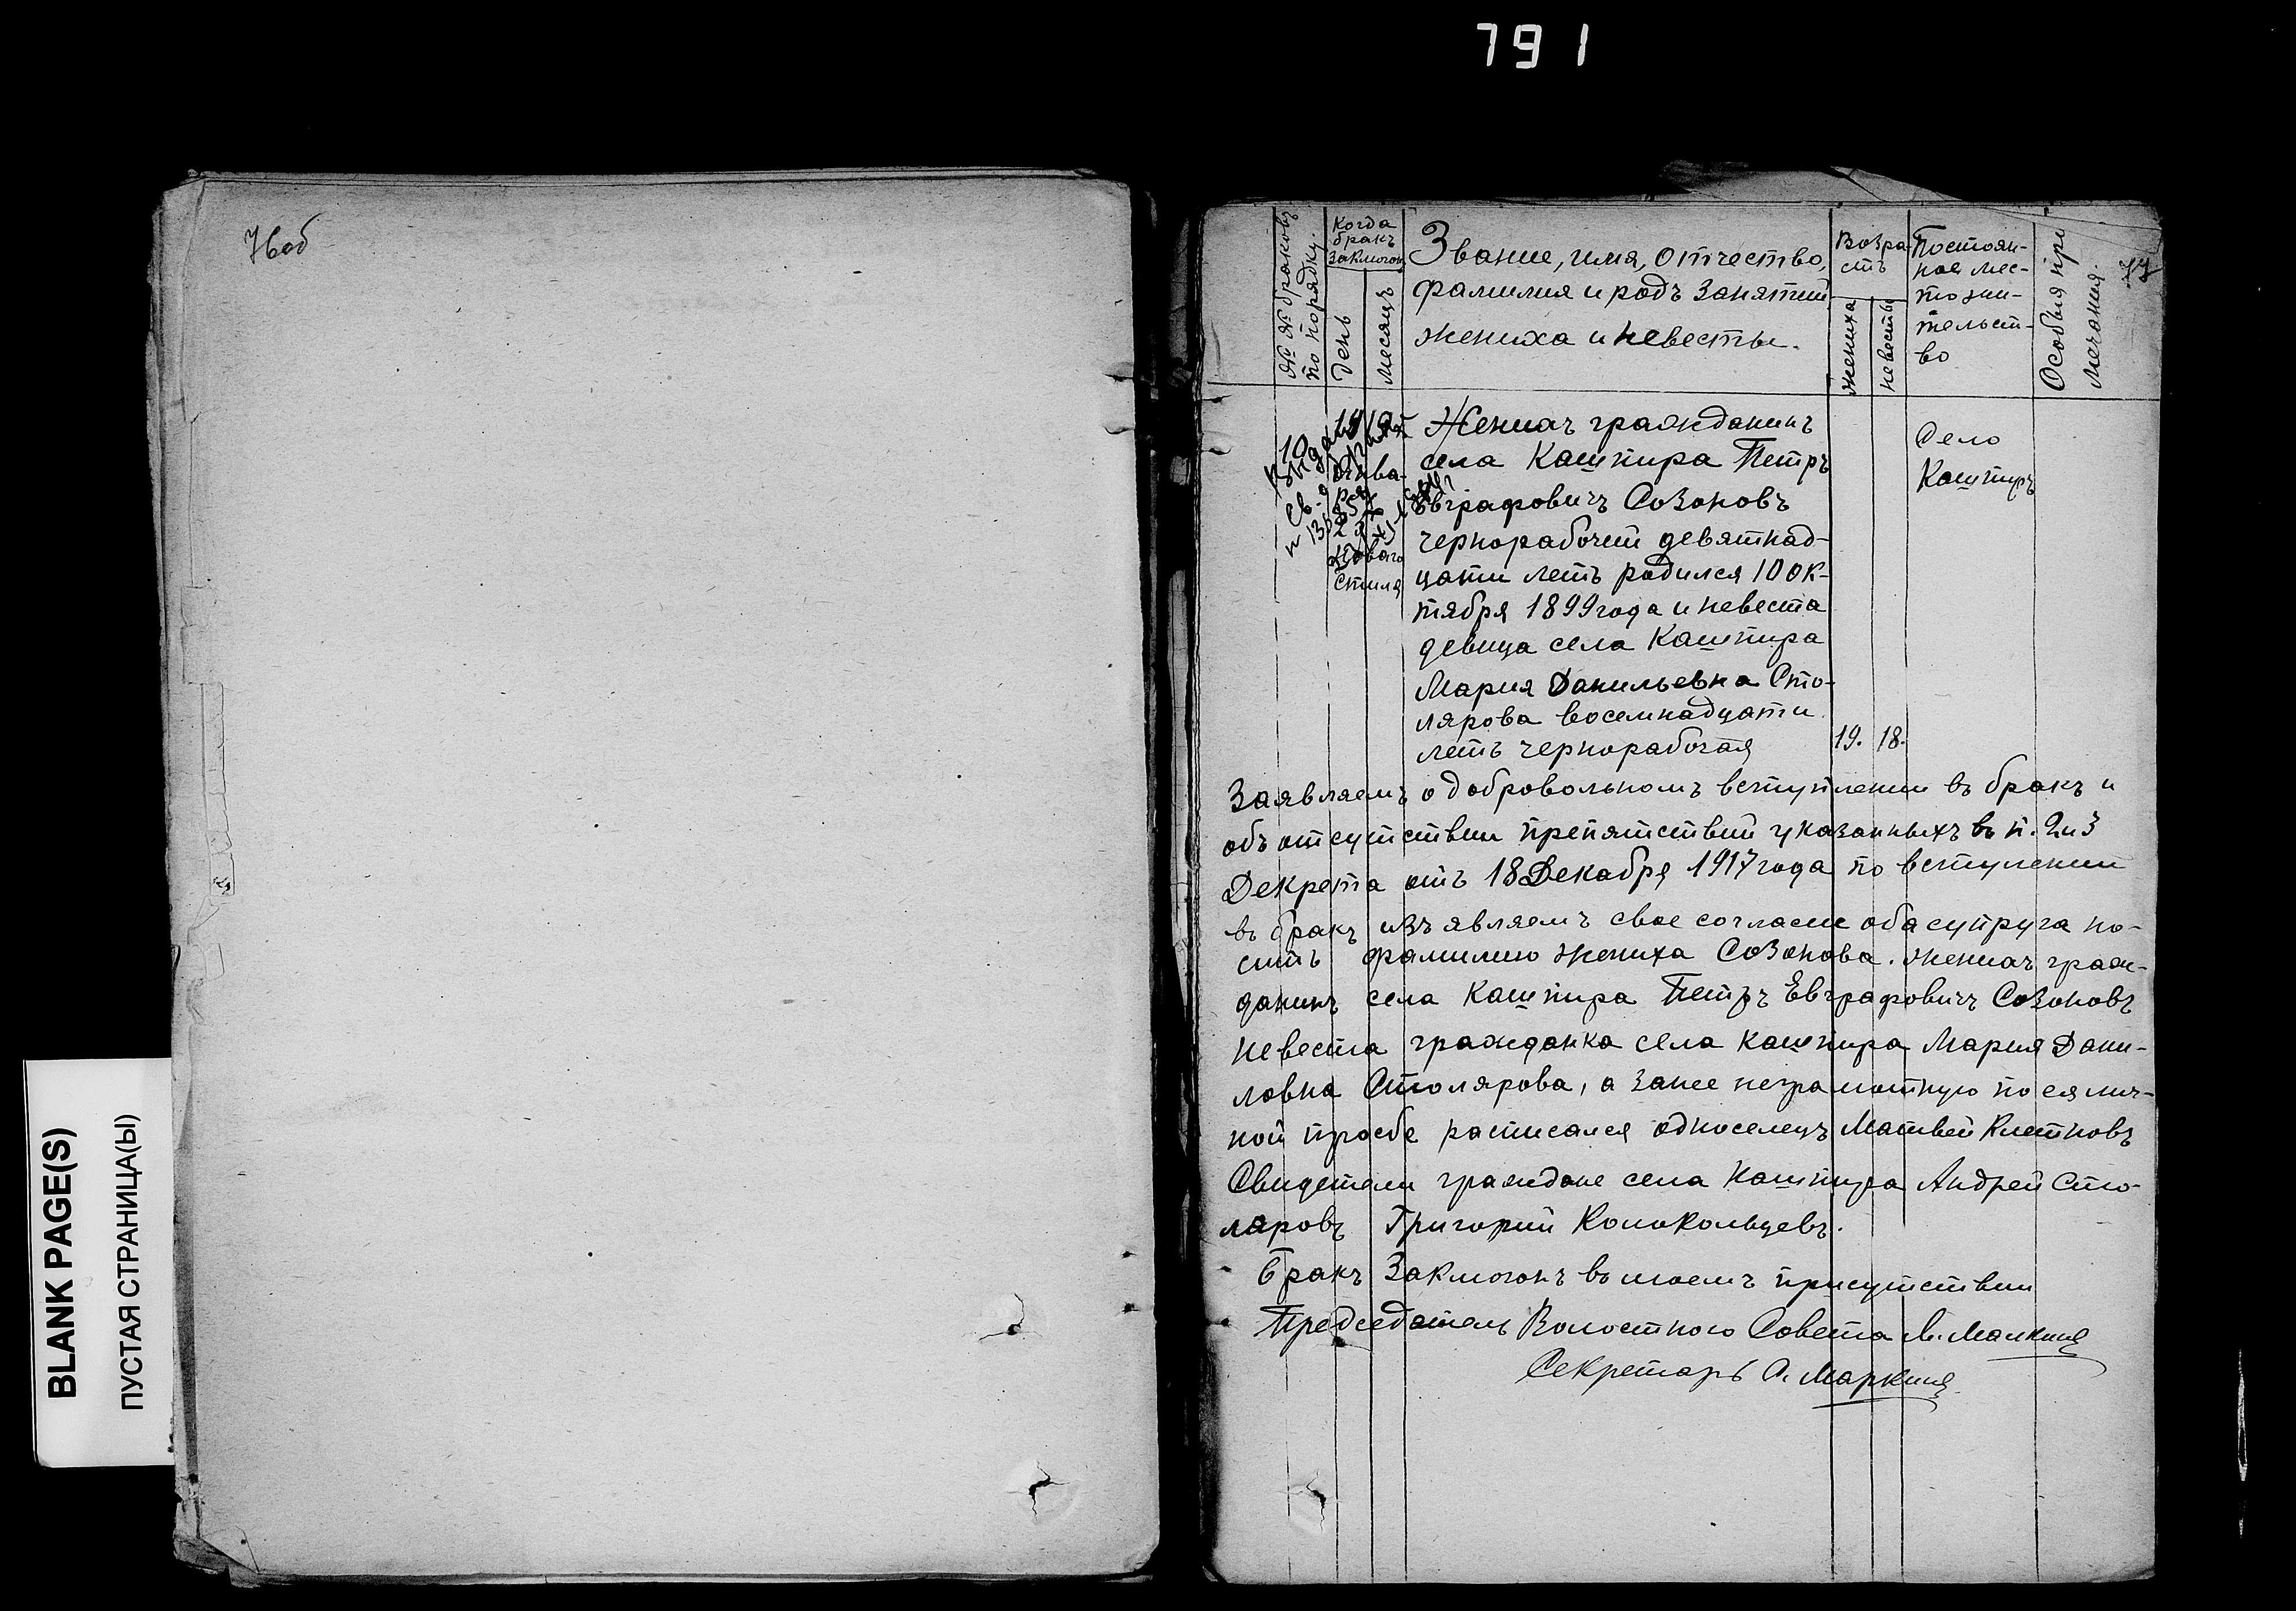 791
76 об
BLANK PAGE(S)
ПУСТАЯ СТРАНИЦА(Ы)
77
№ № браковъ
по порядку.
Когда
бракъ
заключон
День
Месяцъ
Звание, имя, отчество,
фамилия и родъ занятий
жениха и невесты.
Возра-
стъ
жениха
невесты
Постоян-
ное мес-
то жи-
тельст-
во
Особыя при
мечания.
10
1919
Янва-
ря
Новаго
Стиля
Женихъ гражданинъ
села Кашпира Петръ
Евграфовичъ Созоновъ
чернорабочий девятнад-
цати летъ родился 10 ок-
тября 1899 года и невеста
девица села Кашпира
Мария Данильевна Сто-
лярова восемнадцати
летъ чернорабочая
19. 18.
Село
Кашпиръ
Заявляемъ о добровольномъ вступлении въ бракъ и
объ отсутствии препятствий указанныхъ въ п. 2 и 3
Декрета отъ 18 Декабря 1917 года по вступлении
въ бракъ изъявляемъ свое согласие оба супруга но-
сить фамилию жениха Созонова. женихъ граж-
данинъ села Кашпира Петръ Евграфовичъ Созоновъ
невеста гражданка села Кашпира Мария Дани-
ловна Столярова, а за нее неграмотную по ея лич-
ной просбе расписался односелецъ Матвей Клетновъ
Свидетели граждане села Кашпира Андрей Сто-
ляровъ Григорий Колокольцевъ.
Бракъ Заключонъ въ моемъ присутствии
Председатель Волостного Совета
Секретарь А. Маркинъ